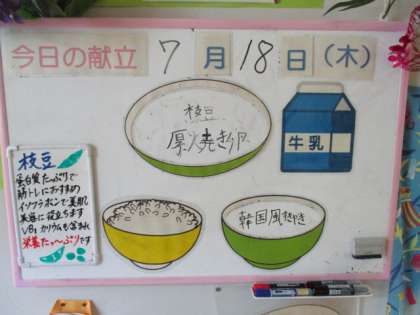 今日の献立 7月18日(木)
枝豆
厚焼き卵
牛乳
枝豆
蛋白質たっぷりで
筋トレにおすすめ
イソフラボンで美肌
美容に役立ちます
VB1 カリウムも含まれ
栄養たっ〜ぷりです
韓国風すき焼き